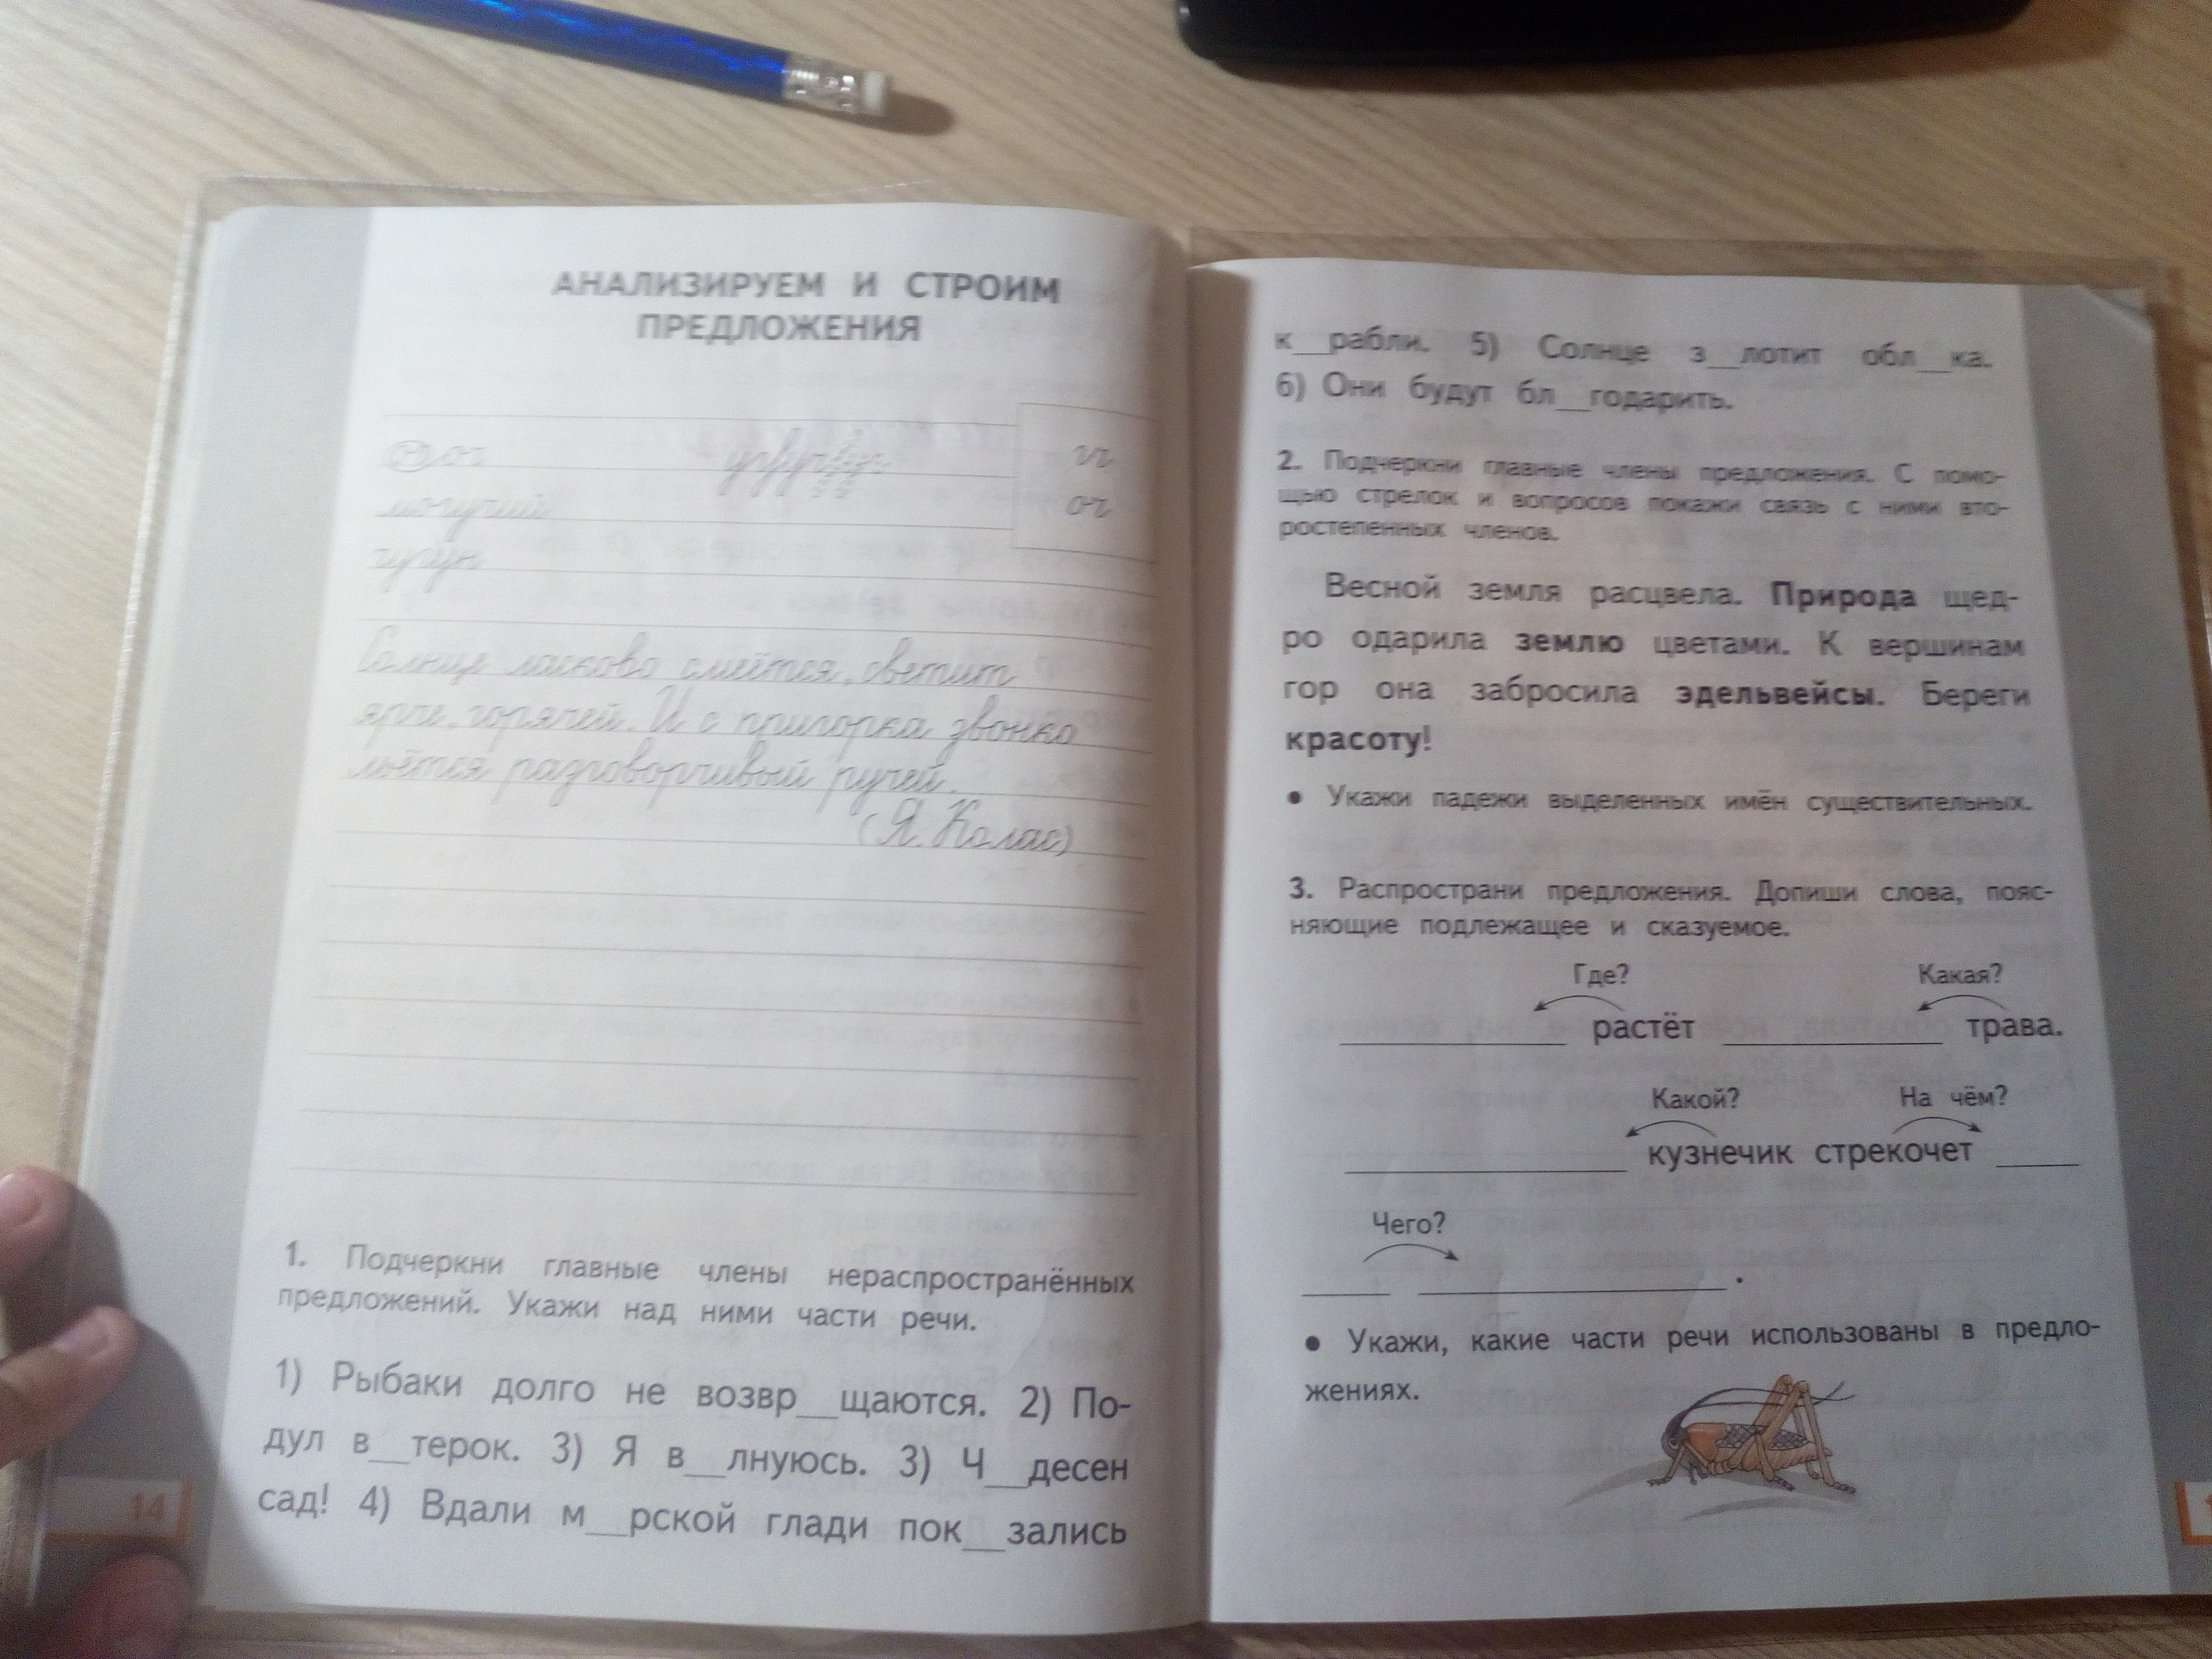 АНАЛИЗИРУЕМ И СТРОИМ
ПРЕДЛОЖЕНИЯ
гг
могучий
ог
чугун
Солнце ласково смеётся, светит
ярче, горячей. И с пригорка звонко
льётся разговорчивый ручей.
(Я. Колас)
1. Подчеркни главные члены нераспространённых
предложений. Укажи над ними части речи.
1) Рыбаки долго не возвр__щаются. 2) По-
дул в__терок. 3) Я в__лнуюсь. 3) Ч__десен
сад! 4) Вдали м__рской глади пок__зались
14
к__рабли. 5) Солнце з__лотит обл__ка.
6) Они будут бл__годарить.
2. Подчеркни главные члены предложения. С помо-
щью стрелок и вопросов покажи связь с ними вто-
ростепенных членов.
Весной земля расцвела. Природа щед-
ро одарила землю цветами. К вершинам
гор она забросила эдельвейсы. Береги
красоту!
• Укажи падежи выделенных имён существительных.
3. Распространи предложения. Допиши слова, пояс-
няющие подлежащее и сказуемое.
Где? Какая?
____ растёт ____ трава.
Какой? На чём?
____ кузнечик стрекочет ____
Чего?
____ ____.
• Укажи, какие части речи использованы в предло-
жениях.